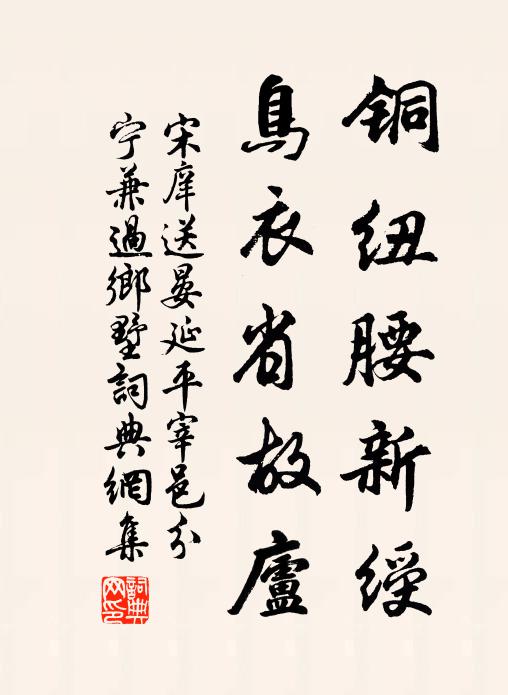 铜纽腰新绶
鳥衣省故廬
宋庠送晏延平宰邑分
宁兼過鄉墅詞典網集
詞典网印